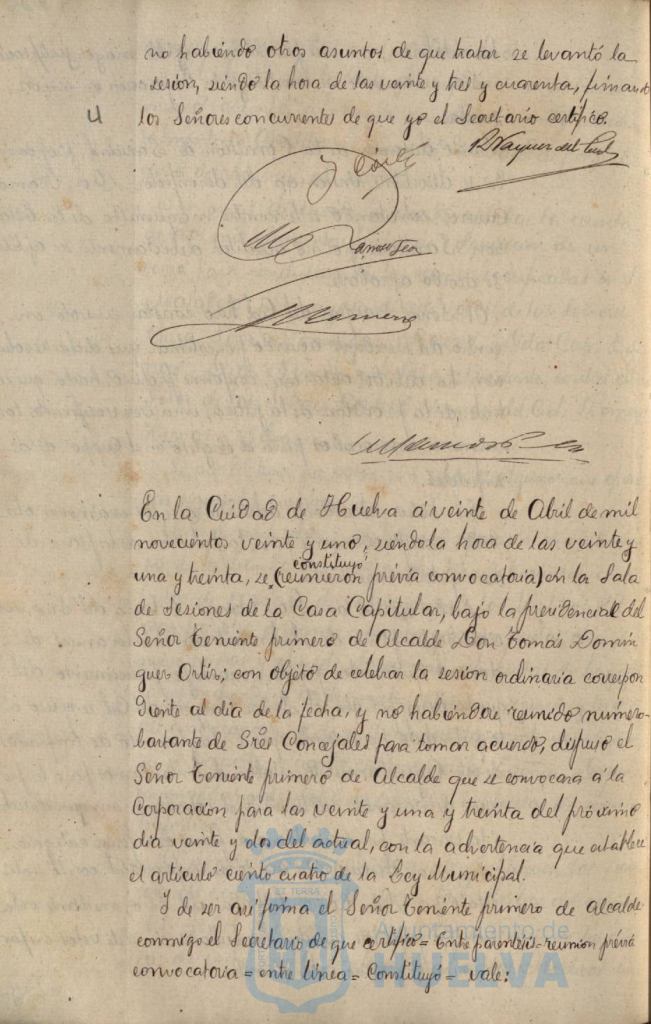 no habiendo otros asuntos de que tratar se levantó la
sesión, siendo la hora de las veinte y tres y cuarenta, firmando
los Señores concurrentes de que yo el Secretario certifico.
En la Cuidad de Huelva á veinte de Abril de mil
novecientos veinte y uno, siendo la hora de las veinte y
constituyó
una y treinta, se (reunieron prévia convocatoria) en la Sala
de Sesiones de la Casa Capitular, bajo la presidencia del
Señor Teniente primero de Alcalde Don Tomás Domin
guez Ortiz; con objeto de celebrar la sesión ordinaria correspon
diente al dia de la fecha, y no habiendose reunido número
bastante de Sres Concejales para tomar acuerdo, dispuso el
Señor Teniente primero de Alcalde que se convocara á la
Corporación para las veinte y una y treinta del próximo
dia veinte y dos del actual, con la advertencia que establece
el artículo ciento cuatro de la Ley Municipal.
Y de ser así firma el Señor Teniente primero de Alcalde
conmigo el Secretario de que certifico = Entre parentesis = reunion prévia
convocatoria = entre linea = Constituyó = vale:
Ayuntamiento de
HUELVA